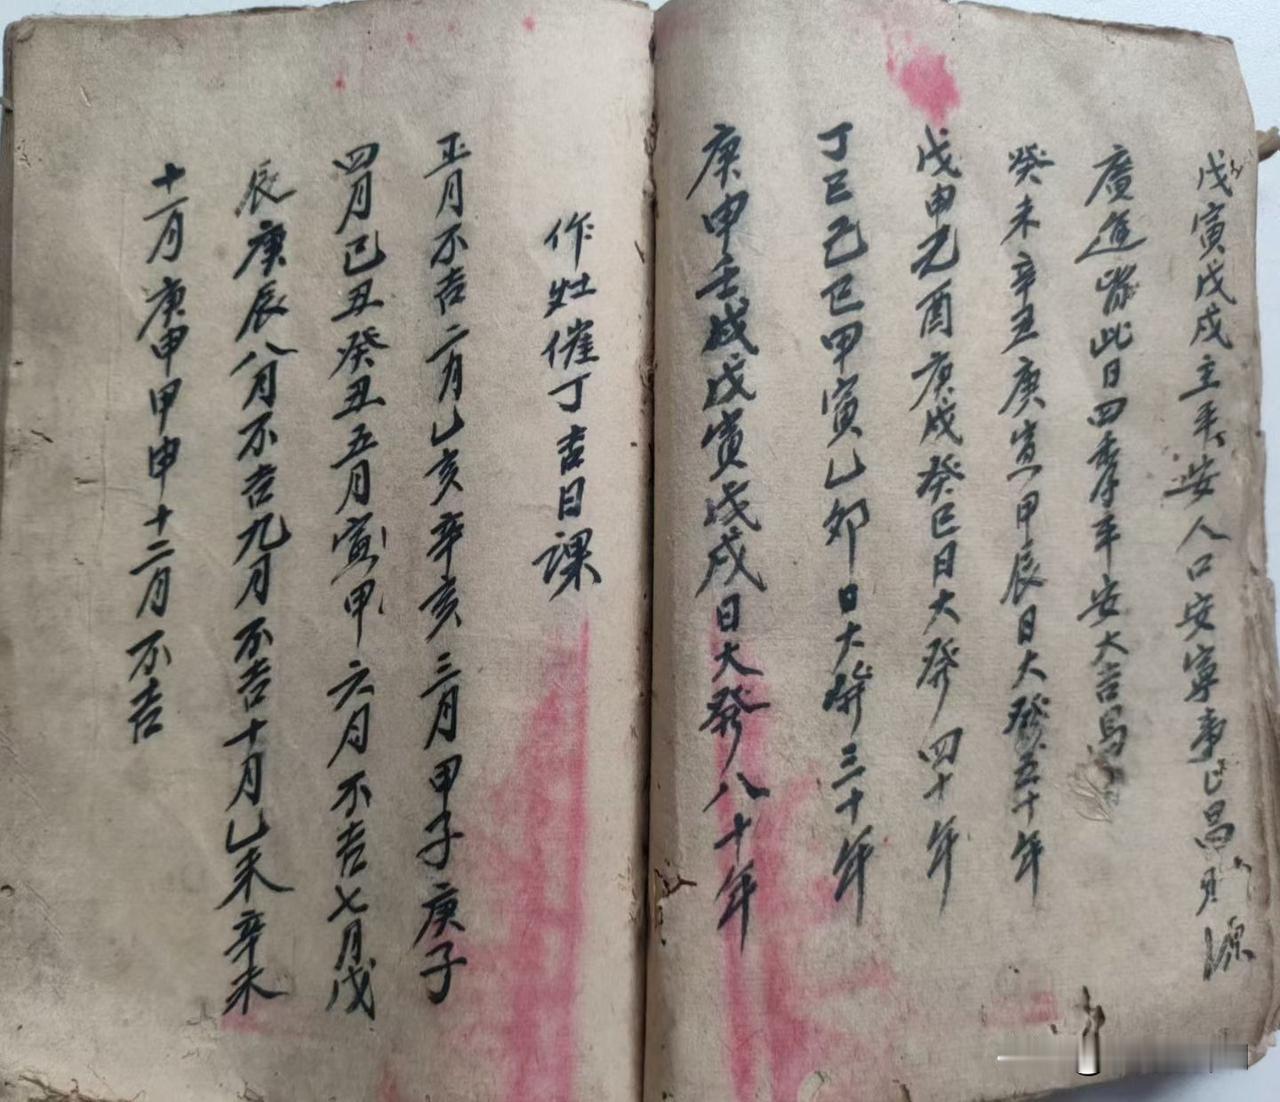 戊寅戊戌主平安人口安寧事亡昌財源
廣進此日四季平安大吉昌
癸未辛丑庚寅甲辰日大發五十年
戊申元酉庚戌癸巳日大發四十年
丁巳己巳甲寅乙卯日大發三十年
庚申壬戌戊寅戊戌日大發八十年
作灶催丁吉日課
正月不吉二月乙亥辛亥三月甲子庚子
四月已丑癸丑五月寅甲六月不吉七月戊
辰庚辰八月不吉九月不吉十月乙未辛未
十一月庚申甲申十二月不吉